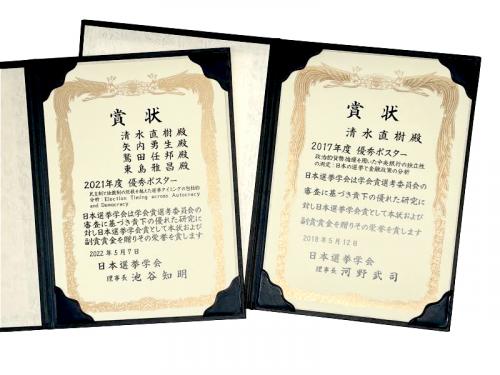 賞状
清水直樹 殿
矢内勇生 殿
鷲田任邦 殿
東島雅昌 殿
2021年度 優秀ポスター
民主制と独裁制の垣根を越えた選挙タイミングの包括的
分析 Election Timing across Autocracy
and Democracy
日本選挙学会は学会賞選考委員会の
審査に基づき貴下の優れた研究に
対し日本選挙学会賞として本状および
副賞賞金を贈りその栄誉を賞します
2022年5月7日
日本選挙学会
理事長 池谷知明
賞状
清水直樹 殿
2017年度 優秀ポスター
政治的貨幣循環を用いた中央銀行の独立性
の測定：日本の選挙と金融政策の分析
日本選挙学会は学会賞選考委員会の
審査に基づき貴下の優れた研究に
対し日本選挙学会賞として本状および
副賞賞金を贈りその栄誉を賞します
2018年5月12日
日本選挙学会
理事長 河野武司